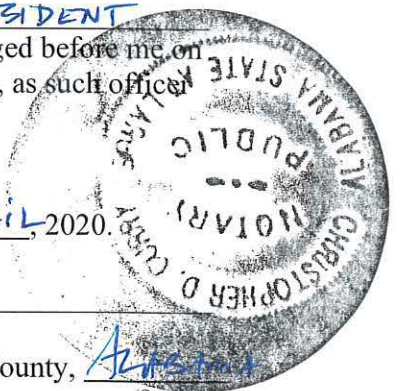 SIDENT
ged before me on
, as such officer
iL, 2020.
ounty, Alabama
CHRISTOPHER D. CURRY
NOTARY
PUBLIC
ALABAMA STATE AT LARGE